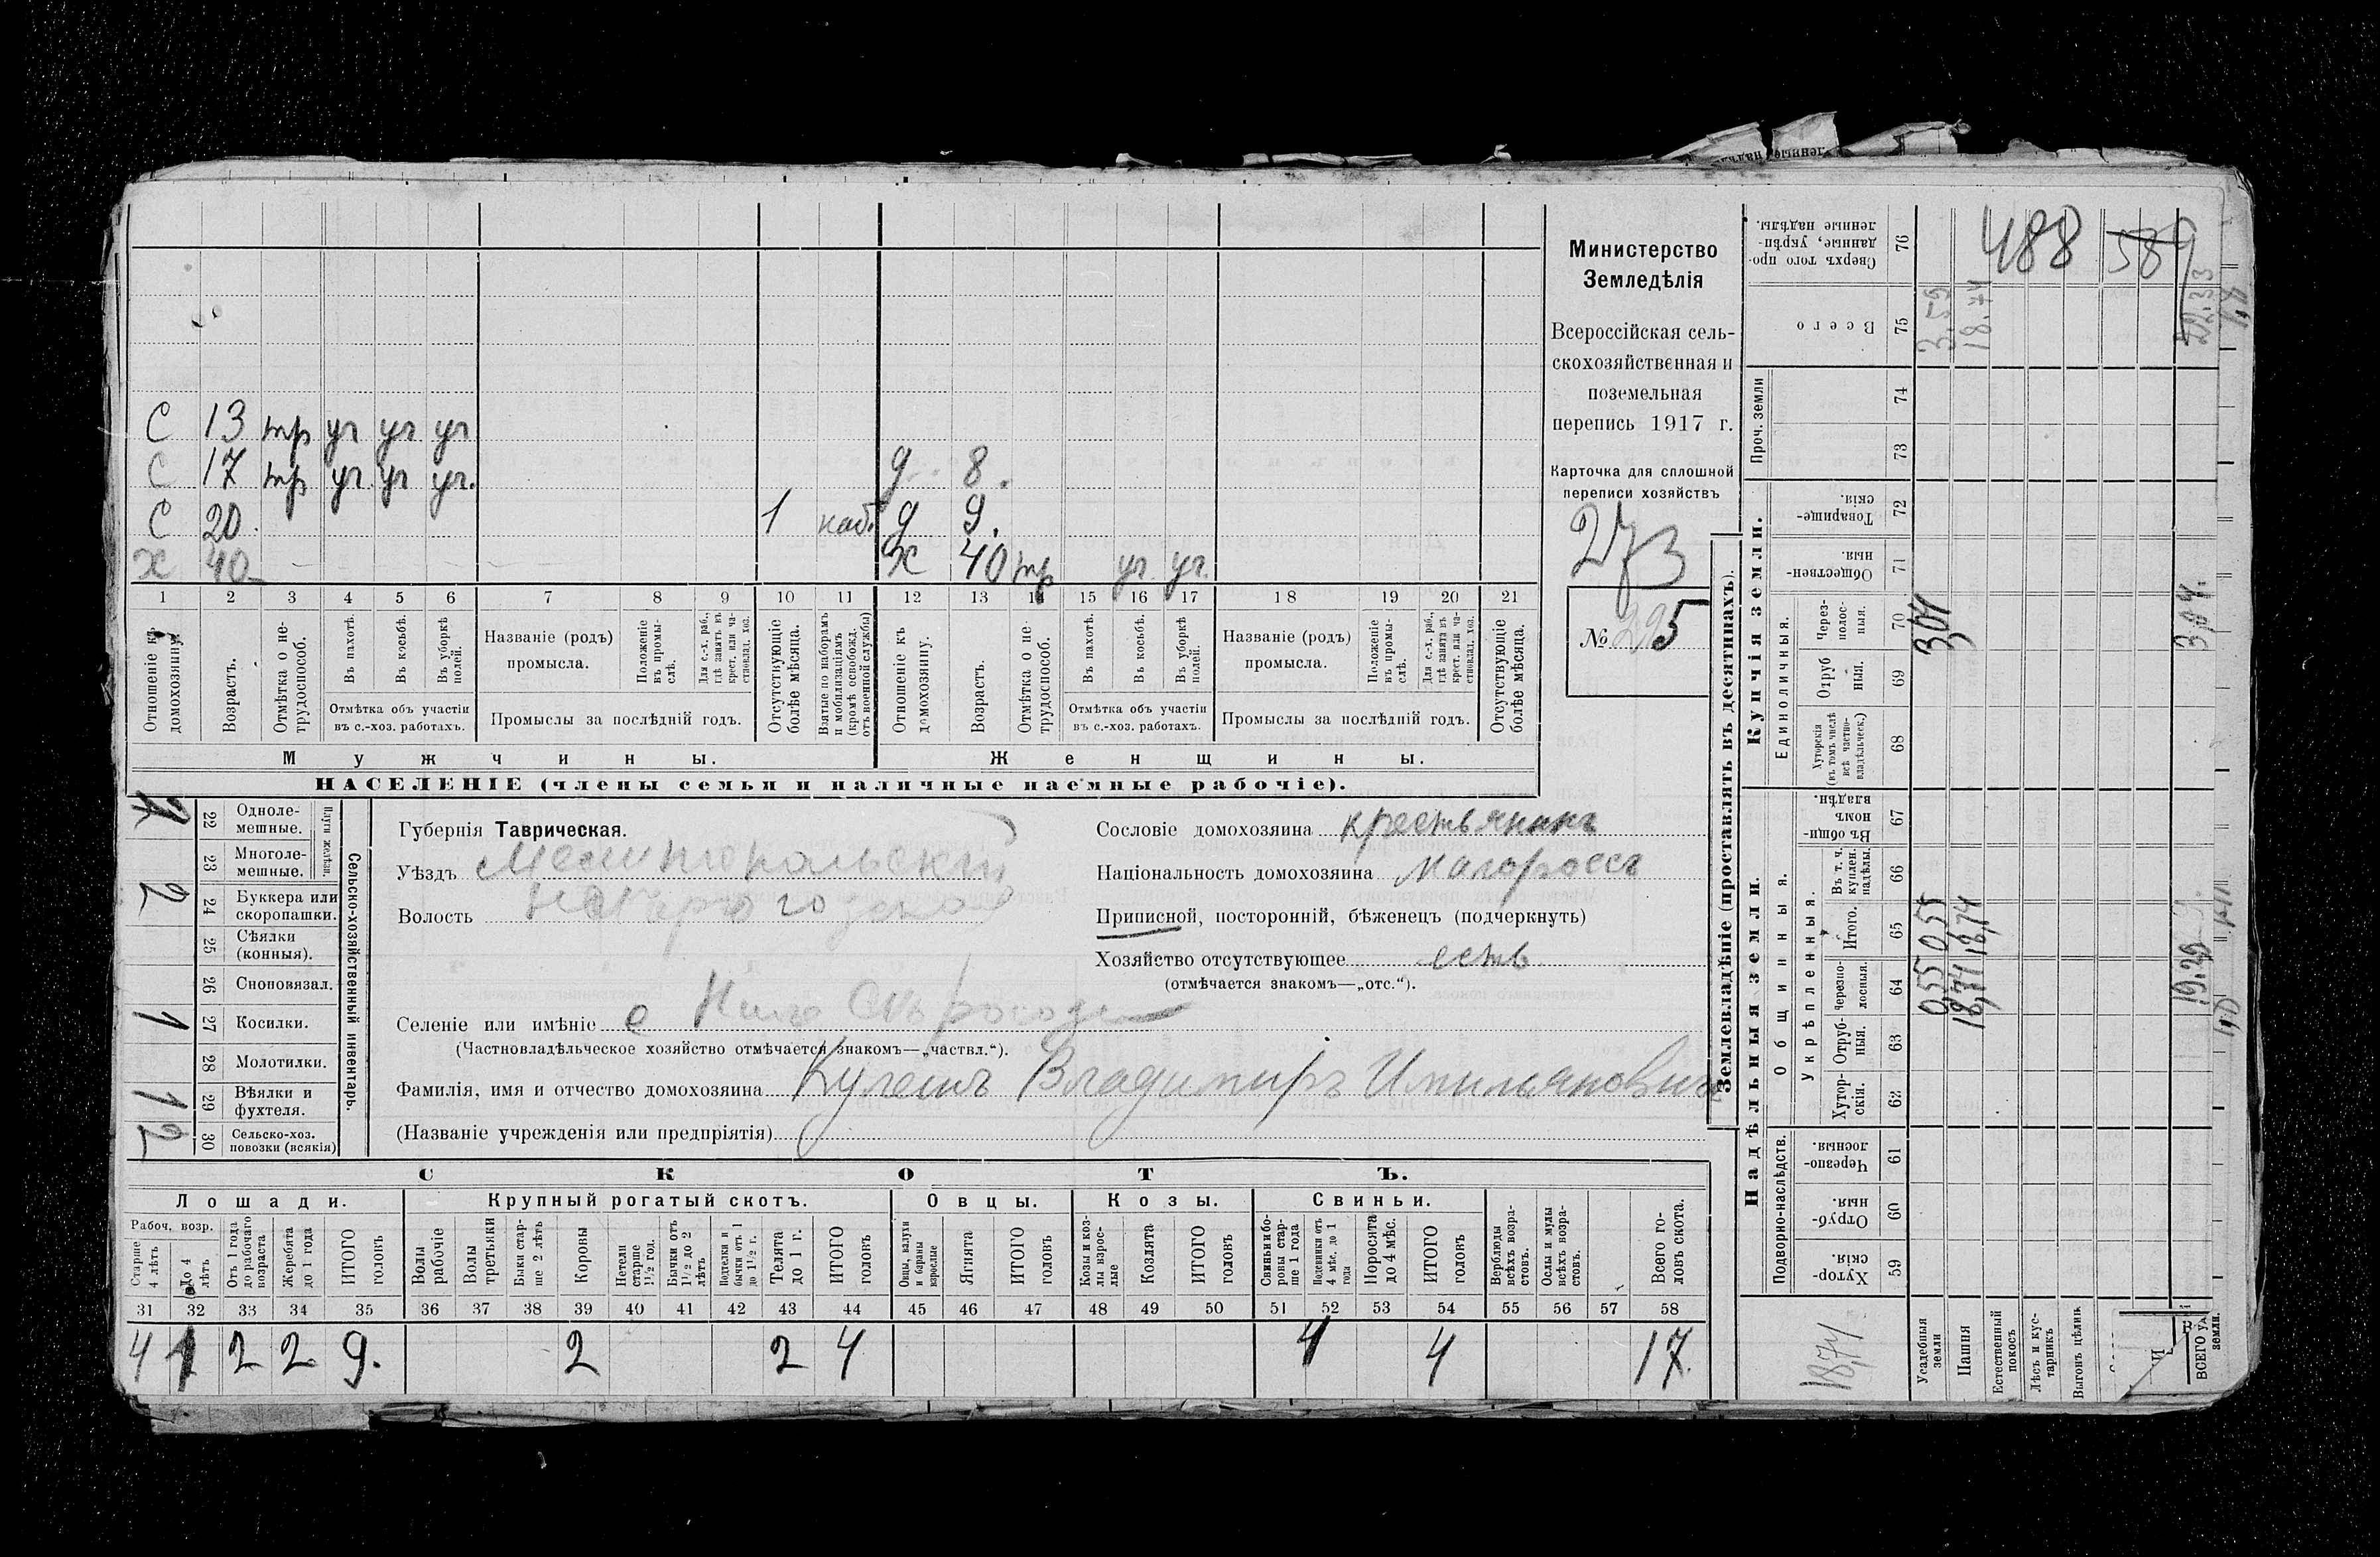 С 13 тр уч уч уч
С 17 тр уч уч уч. д. 8.
С 20. 1 наб. д 9.
х 40 х 40 тр уч. уч.
1 2 3 4 5 6 7 8 9 10 11 12 13 14 15 16 17 18 19 20 21
Отношеніе къ домохозяину.
Возрастъ.
Отмѣтка о нетрудоспособ.
Въ пахотѣ.
Въ косьбѣ.
Въ уборкѣ полей.
Отмѣтка объ участіи
въ с.-хоз. работахъ.
Названіе (родъ)
промысла.
Положеніе въ промыслѣ.
Для с.-х. раб., гдѣ занятъ въ крест. или частновлад. хоз.
Промыслы за послѣдній годъ.
Отсутствующіе болѣе мѣсяца.
Взятые по наборамъ и мобилизаціямъ (кромѣ освобожд. отъ военной службы)
Отношеніе къ домохозяину.
Возрастъ.
Отмѣтка о нетрудоспособ.
Въ пахотѣ.
Въ косьбѣ.
Въ уборкѣ полей.
Отмѣтка объ участіи
въ с.-хоз. работахъ.
Названіе (родъ)
промысла.
Положеніе въ промыслѣ.
Для с.-х. раб., гдѣ занята въ крест. или частновлад. хоз.
Промыслы за послѣдній годъ.
Отсутствующіе болѣе мѣсяца.
Мужчины. Женщины.
НАСЕЛЕНІЕ (члены семьи и наличные наемные рабочіе).
Министерство
Земледѣлія
Всероссійская сель-
скохозяйственная и
поземельная
перепись 1917 г.
Карточка для сплошной
переписи хозяйствъ
273
№ 295
1 22 Одноле-
мешные.
23 Многоле-
мешные.
Плуги желѣзн.
2 24 Буккера или
скоропашки.
25 Сѣялки
(конныя).
26 Сноповязал.
1 27 Косилки.
28 Молотилки.
1 29 Вѣялки и
фухтеля.
2 30 Сельско-хоз.
повозки (всякія)
Сельско-хозяйственный инвентарь.
Губернія Таврическая.
Уѣздъ Мелитопольскій
Волость
Селеніе или имѣніе с
(Частновладѣльческое хозяйство отмѣчается знакомъ—„частвл.“).
Фамилія, имя и отчество домохозяина Кулешъ Владимиръ Имильяновичъ
(Названіе учрежденія или предпріятія)
Сословіе домохозяина крестьянинъ
Національность домохозяина малороссъ
Приписной, посторонній, бѣженецъ (подчеркнуть)
Хозяйство отсутствующее есть
(отмѣчается знакомъ—„отс.“).
СКОТЪ.
Лошади. Крупный рогатый скотъ. Овцы. Козы. Свиньи.
Рабоч. возр.
Старше 4 лѣтъ
До 4 лѣтъ
Отъ 1 года до рабочаго возраста
Жеребята до 1 года
ИТОГО головъ
Волы рабочіе
Волы третьяки
Быки старше 2 лѣтъ
Коровы
Нетели старше 1½ год.
Бычки отъ 1½ до 2 лѣтъ
Подтелки и бычки отъ 1 до 1½ г.
Телята до 1 г.
ИТОГО головъ
Овцы, валухи и бараны взрослые
Ягнята
ИТОГО головъ
Козы и козлы взрослые
Козлята
ИТОГО головъ
Свиньи и боровы старше 1 года
Подсвинки отъ 4 мѣс. до 1 года
Поросята до 4 мѣс.
ИТОГО головъ
Верблюды всѣхъ возрастовъ.
Ослы и мулы всѣхъ возрастовъ.
Всего головъ скота.
31 32 33 34 35 36 37 38 39 40 41 42 43 44 45 46 47 48 49 50 51 52 53 54 55 56 57 58
4 1 2 2 9. 2 2 4 4 4 17.
Землевладѣніе (проставлять въ десятинахъ).
Купчія земли.
Надѣльныя земли.
Сверхъ того проданные, укрѣпленные надѣлы. 76
488 589
Всего 75
3.59
18.74
22.33
Проч. земли
74
73
Товарищескія. 72
Общественныя. 71
Единоличныя.
Черезполосныя. 70
3,04
3,04.
Отрубныя. 69
Хуторскія (въ томъ числѣ всѣ частновладѣльческ.) 68
Общинныя.
Въ общинномъ владѣн. 67
Укрѣпленныя.
Въ т. ч. куплен. надѣлы. 66
Итого. 65
0,55
18,74
Черезполосныя. 64
0,55
18,74
19.29
Отрубныя. 63
Хуторскія. 62
Подворно-наслѣдств.
Черезполосныя. 61
Отрубныя. 60
Хуторскія. 59
18,74
Усадебныя земли
Пашня
Естественный покосъ
Лѣсъ и кустарникъ
Выгонъ цѣлик
ВСЕГО
земли.